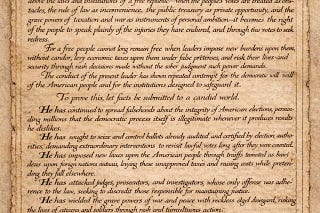 above the laws and institutions of a free republic—when the people's votes are treated as obsta-
cles, the rule of law as inconvenience, the public treasury as private opportunity, and the
grave powers of taxation and war as instruments of personal ambition—it becomes the right
of the people to speak plainly of the injuries they have endured, and through their votes to seek
redress.
For a free people cannot long remain free when leaders impose new burdens upon them,
without candor, levy economic taxes upon them under false pretenses, and risk their lives and
security through rash decisions made without the sober judgment such power demands.
The conduct of the present leader has shown repeated contempt for the democratic will
of the American people and for the institutions designed to safeguard it.
To prove this, let facts be submitted to a candid world.
He has continued to spread falsehoods about the integrity of American elections, persua-
ding millions that the democratic process itself is illegitimate whenever it produces results
he dislikes.
He has sought to seize and control ballots already audited and certified by election autho-
rities, demanding extraordinary interventions to revisit lawful votes long after they were counted.
He has imposed new taxes upon the American people through tariffs touted as bur-
dens upon foreign nations, laying those unapproved taxes and raising costs while preten-
ding they fall elsewhere.
He has attacked judges, prosecutors, and investigators, whose only offense was adhe-
rence to the law, seeking to discredit those responsible for maintaining justice.
He has wielded the grave powers of war and peace with reckless disregard, risking
the lives of citizens and soldiers through rash and tumultuous actions.